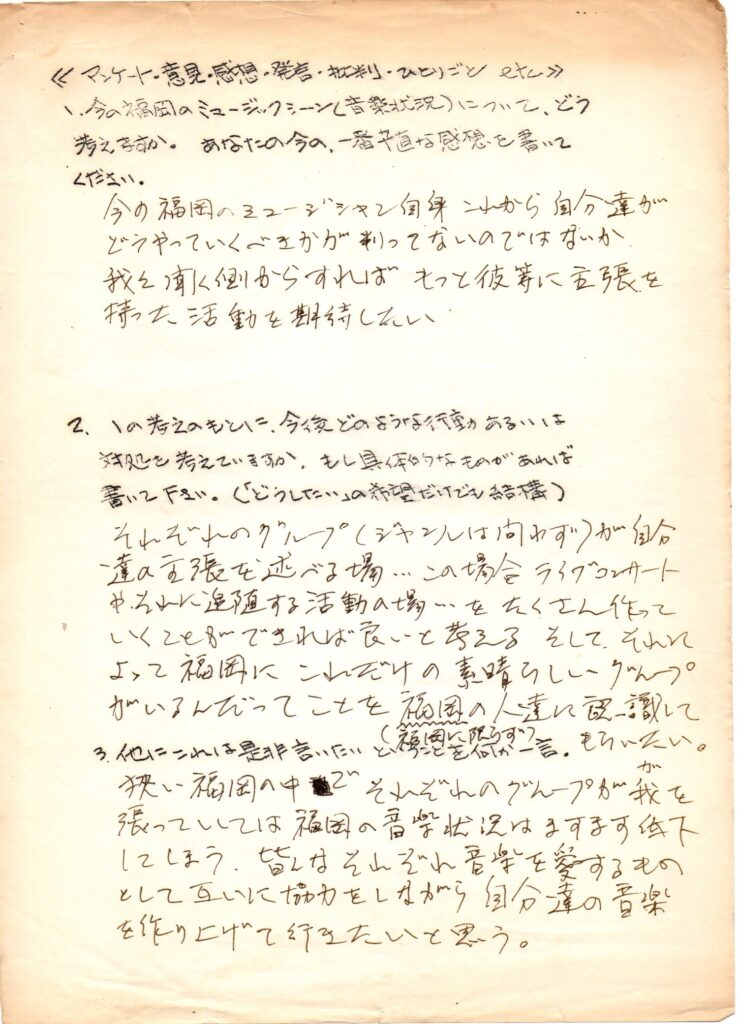 ≪アンケート・意見・感想・発言・批判・ひとりごと etc≫
1. 今の福岡のミュージックシーン(音楽状況)について、どう
考えますか。 あなたの今の、一番卆直な感想を書いて
ください。
今の福岡のミュージシャン自身 これから 自分達が
どうやっていくべきかが 判ってないのではないか
我々聞く側からすれば もっと彼等に主張を
持った 活動を期待したい
2. 1の考えのもとに、今後どのような行動あるいは
対処を考えていますか。もし具体的なものがあれば
書いて下さい。(「どうしたい」の希望だけでも結構)
それぞれのグループ(ジャンルは問わず)が自分
達の主張を述べる場…この場合 ライブコンサート
や、それに追随する活動の場…を たくさん作って
いくことができれば良いと考える そして、それに
よって 福岡に これだけの素晴らしいグループ
がいるんだってことを 福岡の人達に認識して
(福岡に限らず) もらいたい。
3. 他にこれは是非言いたいということを何か一言。
狭い福岡の中で それぞれのグループが我を
が
張っていしては福岡の音楽状況はますます低下
してしまう。皆んなそれぞれ音楽を愛するもの
として互いに協力をしながら 自分達の音楽
を作り上げて行きたいと思う。